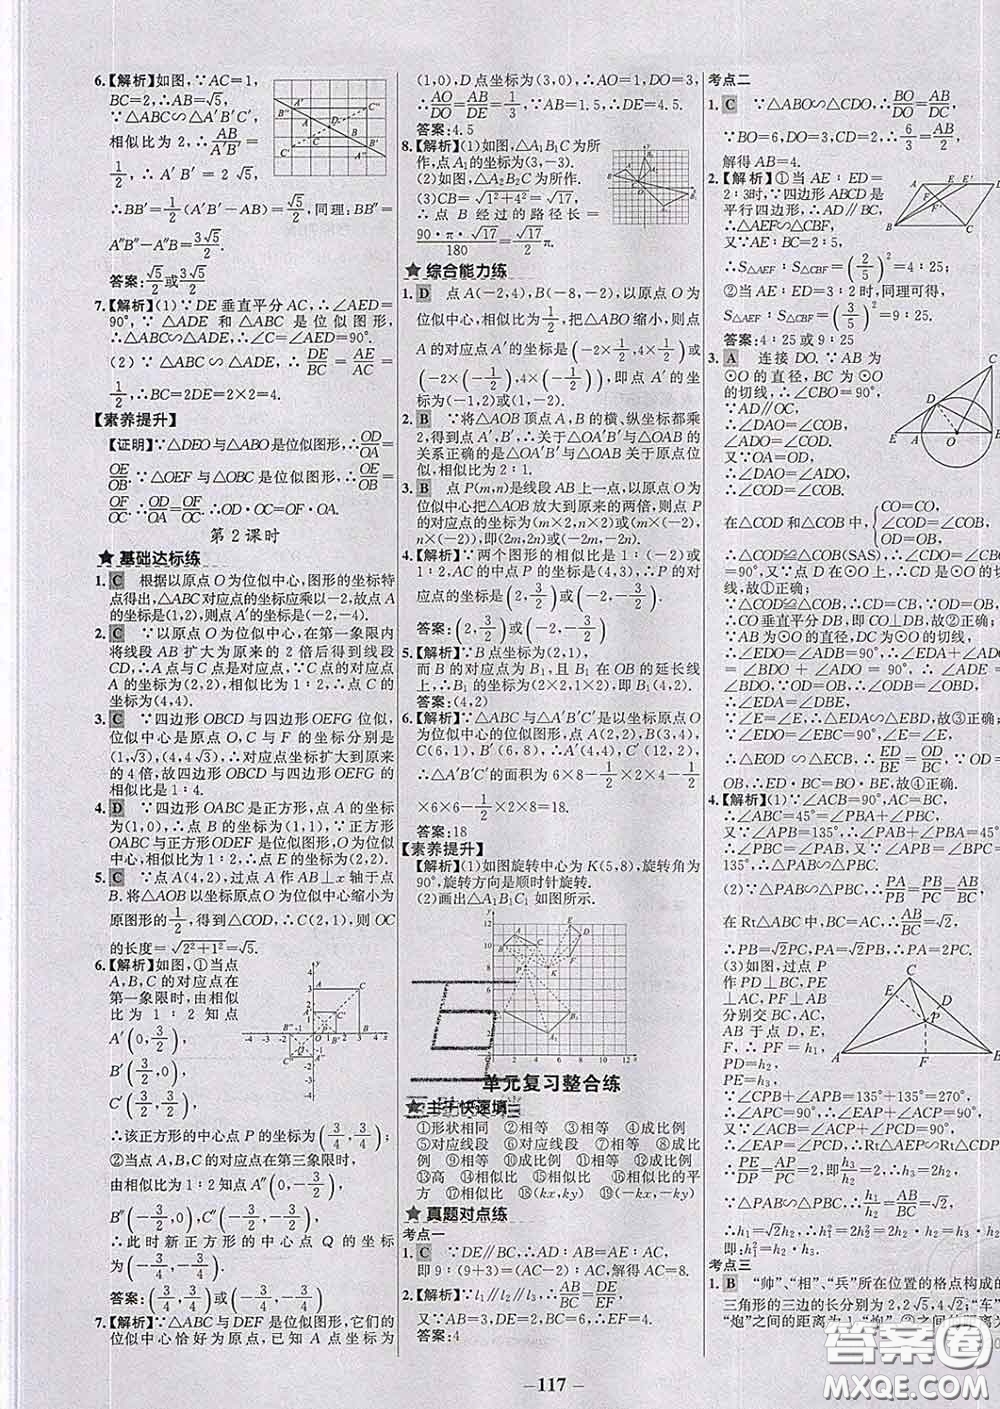 6.【解析】如图,∵AC=1,
BC=2,∴AB=√5,
∵△ABC∽△A′B′C′,
相似比为1∶2,∴AB/A′B′=
1/2,∴A′B′=2√5,
∴BB′=1/2(A′B′-AB)=√5/2,同理:BB″=
A″B″-A″B=3√5/2.
答案:√5/2或3√5/2
7.【解析】(1)∵DE垂直平分AC,∴∠AED=
90°,∵△ADE和△ABC是位似图形,
∴△ABC∽△ADE,∴∠C=∠AED=90°.
(2)∵△ABC∽△ADE,∴DE/BC=AE/AC=
1/2,∴BC=2DE=2×2=4.
【素养提升】
【证明】∵△DEO与△ABO是位似图形,∴OD/OA=
OE/OB.∵△OEF与△OBC是位似图形,∴OE/OB=
OF/OC,∴OD/OA=OF/OC,∴OD·OC=OF·OA.
第2课时
★基础达标练
1.C 根据以原点O为位似中心,图形的坐标特
点得出,△ABC对应点的坐标应乘以-2,故点A
的坐标是(1,2),则点A′的坐标是(-2,-4).
2.C ∵以原点O为位似中心,在第一象限内
将线段AB扩大为原来的2倍后得到线段
CD,∴点A与C点是对应点,∵C点的对应点
A的坐标为(2,2),相似比为1∶2,∴点C的
坐标为(4,4).
3.C ∵四边形OBCD与四边形OEFG位似,
位似中心是原点O,C与F的坐标分别是
(1,√3),(4,4√3),∴对应点坐标扩大到原来
的4倍,故四边形OBCD与四边形OEFG的相
似比为1∶4.
4.D ∵四边形OABC是正方形,点A的坐标
为(1,0),∴点B的坐标为(1,1),∵正方形
OABC与正方形ODEF是位似图形,O为位似
中心,相似比为1∶2,∴点E的坐标为(2,2).
5.C ∵点A(4,2),过点A作AB⊥x轴于点
B.将△AOB以坐标原点O为位似中心缩小为
原图形的1/2,得到△COD,∴C(2,1),则OC
的长度=√(2²+1²)=√5.
6.【解析】如图,①当点
A,B,C的对应点在
第一象限时,由相似
比为1∶2知点
A′(0,3/2),
B′(3/2,0),
C′(3/2,3/2),
∴该正方形的中心点P的坐标为(3/4,3/4);
②当点A,B,C的对应点在第三象限时,
由相似比为1∶2知点A″(0,-3/2),
B″(-3/2,0),C″(-3/2,-3/2),
∴此时新正方形的中心点Q的坐标
为(-3/4,-3/4).
答案:(3/4,3/4)或(-3/4,-3/4)
7.【解析】∵△ABC与△DEF是位似图形,它们的
位似中心恰好为原点,已知A点坐标为
(1,0),D点坐标为(3,0),∴AO=1,DO=3,
∴AO/DO=AB/DE=1/3,∵AB=1.5,∴DE=4.5.
答案:4.5
8.【解析】(1)如图,△A₁B₁C为所
作,点A₁的坐标为(3,-3).
(2)如图,△A₂B₂C为所作.
(3)CB=√(1²+4²)=√17,
∴点B经过的路径长=
90·π·√17/180=√17/2π.
★综合能力练
1.D 点A(-2,4),B(-8,-2),以原点O为
位似中心,相似比为1/2,把△ABO缩小,则点
A的对应点A′的坐标是(-2×1/2,4×1/2)或
(-2×(-1/2),4×(-1/2)),即点A′的坐
标为(-1,2)或(1,-2).
2.B ∵将△AOB顶点A,B的横、纵坐标都乘
2,得到点A′,B′,∴关于△OA′B′与△OAB的
关系正确的是△OA′B′与△OAB关于原点位
似,相似比为2∶1.
3.B 点P(m,n)是线段AB上一点,以原点O为
位似中心把△AOB放大到原来的两倍,则点P
的对应点的坐标为(m×2,n×2)或(m×(-2),
n×(-2)),即(2m,2n)或(-2m,-2n).
4.【解析】∵两个图形的相似比是1∶(-2)或
1∶2,AC的中点P的坐标是(4,3),∴点P的对
应点的坐标是(2,3/2)或(-2,-3/2).
答案:(2,3/2)或(-2,-3/2)
5.【解析】∵B点坐标为(2,1),
而B的对应点为B₁,且B₁在OB的延长线
上,∴B₁的坐标为(2×2,1×2),即B₁(4,2).
答案:(4,2)
6.【解析】∵△ABC与△A′B′C′是以坐标原点O
为位似中心的位似图形,点A(2,2),B(3,4),
C(6,1),B′(6,8),∴A′(4,4),C′(12,2),
∴△A′B′C′的面积为6×8-1/2×2×4-1/2
×6×6-1/2×2×8=18.
答案:18
【素养提升】
【解析】(1)如图旋转中心为K(5,8),旋转角为
90°,旋转方向是顺时针旋转.
(2)画出△A₁B₁C₁如图所示.
单元复习整合练
★主干快速填
①形状相同 ②相等 ③成比例 ④相等
⑤对应线段 ⑥对应线段 ⑦相等 ⑧成比
例 ⑨相等 ⑩成比例 ⑪相等 ⑫成比例
⑬高 ⑭角平分线 ⑮相似比 ⑯相似比的平
方 ⑰相似比 ⑱(kx,ky) ⑲(-kx,-ky)
★真题对点练
考点一
1.C ∵DE∥BC,∴AD∶AB=AE∶AC,
即9∶(9+3)=(AC-2)∶AC,解得AC=8.
2.【解析】∵l₁∥l₂∥l₃,∴AB/BC=DE/EF,
又∵AB=3,DE=2,BC=6,∴EF=4.
答案:4
考点二
1.C ∵△ABO∽△CDO,∴BO/DO=AB/DC,
∵BO=6,DO=3,CD=2,∴6/3=AB/2,
解得AB=4.
2.【解析】①当AE∶ED=
2∶3时,∵四边形ABCD是
平行四边形,∴AD∥BC,
∴△AEF∽△CBF,
又∵AE∶BC=2∶5,
∴S△AEF∶S△CBF=(2/5)²=4∶25;
②当AE∶ED=3∶2时,同理可得,
S△AEF∶S△CBF=(3/5)²=9∶25.
答案:4∶25或9∶25
3.A 连接DO.∵AB为
⊙O的直径,BC为⊙O
的切线,∴∠CBO=90°,
∵AD∥OC,
∴∠DAO=∠COB,
∠ADO=∠COD.
又∵OA=OD,
∴∠DAO=∠ADO,
∴∠COD=∠COB.
在△COD和△COB中,{CO=CO,
∠COD=∠COB,
OD=OB,
∴△COD≌△COB(SAS),∴∠CDO=∠CBO
=90°.又∵点D在⊙O上,∴CD是⊙O的切
线,故①正确;
∵△COD≌△COB,∴CD=CB,∵OD=OB,
∴CO垂直平分DB,即CO⊥DB,故②正确;
∵AB为⊙O的直径,DC为⊙O的切线,
∴∠EDO=∠ADB=90°,∴∠EDA+∠ADO
=∠BDO+∠ADO=90°,∴∠ADE=∠BDO,
∵OD=OB,∴∠ODB=∠OBD,
∴∠EDA=∠DBE,
∵∠E=∠E,∴△EDA∽△EBD,故③正确;
∴△EOD∽△ECB,∴ED/BE=OD/BC,∵OD=
OB,∴ED·BC=BO·BE,故④正确.
4.【解析】(1)∵∠ACB=90°,AC=BC,
∴∠ABC=45°=∠PBA+∠PBC,
又∵∠APB=135°,∴∠PAB+∠PBA=45°,
∴∠PBC=∠PAB,又∵∠APB=∠BPC=
135°,∴△PAB∽△PBC.
(2)∵△PAB∽△PBC,∴PA/PB=PB/PC=AB/BC,
在Rt△ABC中,BC=AC,∴AB/BC=√2,
∴PB=√2PC,PA=√2PB,∴PA=2PC.
(3)如图,过点P
作PD⊥BC,PE⊥AC,
分别交BC,AC,
AB于点D,E,F,
∴PF=h₁,
PD=h₂,
PE=h₃,
∵∠CPB+∠APB=135°+135°=270°,
∴∠APC=90°,∴∠EAP+∠ACP=90°,
又∵∠ACB=∠ACP+∠PCD=90°,
∴∠EAP=∠PCD,∴Rt△AEP∽Rt△CDP,
∴PE/DP=AP/PC=2,即h₃/h₂=2,∴h₃=2h₂,
∵△PAB∽△PBC,∴h₁/h₂=AB/BC=√2,
∴h₁=√2h₂,∴h₁²=2h₂²=2h₂·h₂=h₂·h₃,
即:h₁²=h₂·h₃.
考点三
1.B “帅”、“相”、“兵”所在位置的格点构成的
三角形的三边的长分别为2,2√5,4√2;“车”
“炮”之间的距离为1,“炮”②之间的距离为
—117—
答案圈
MXQE.COM